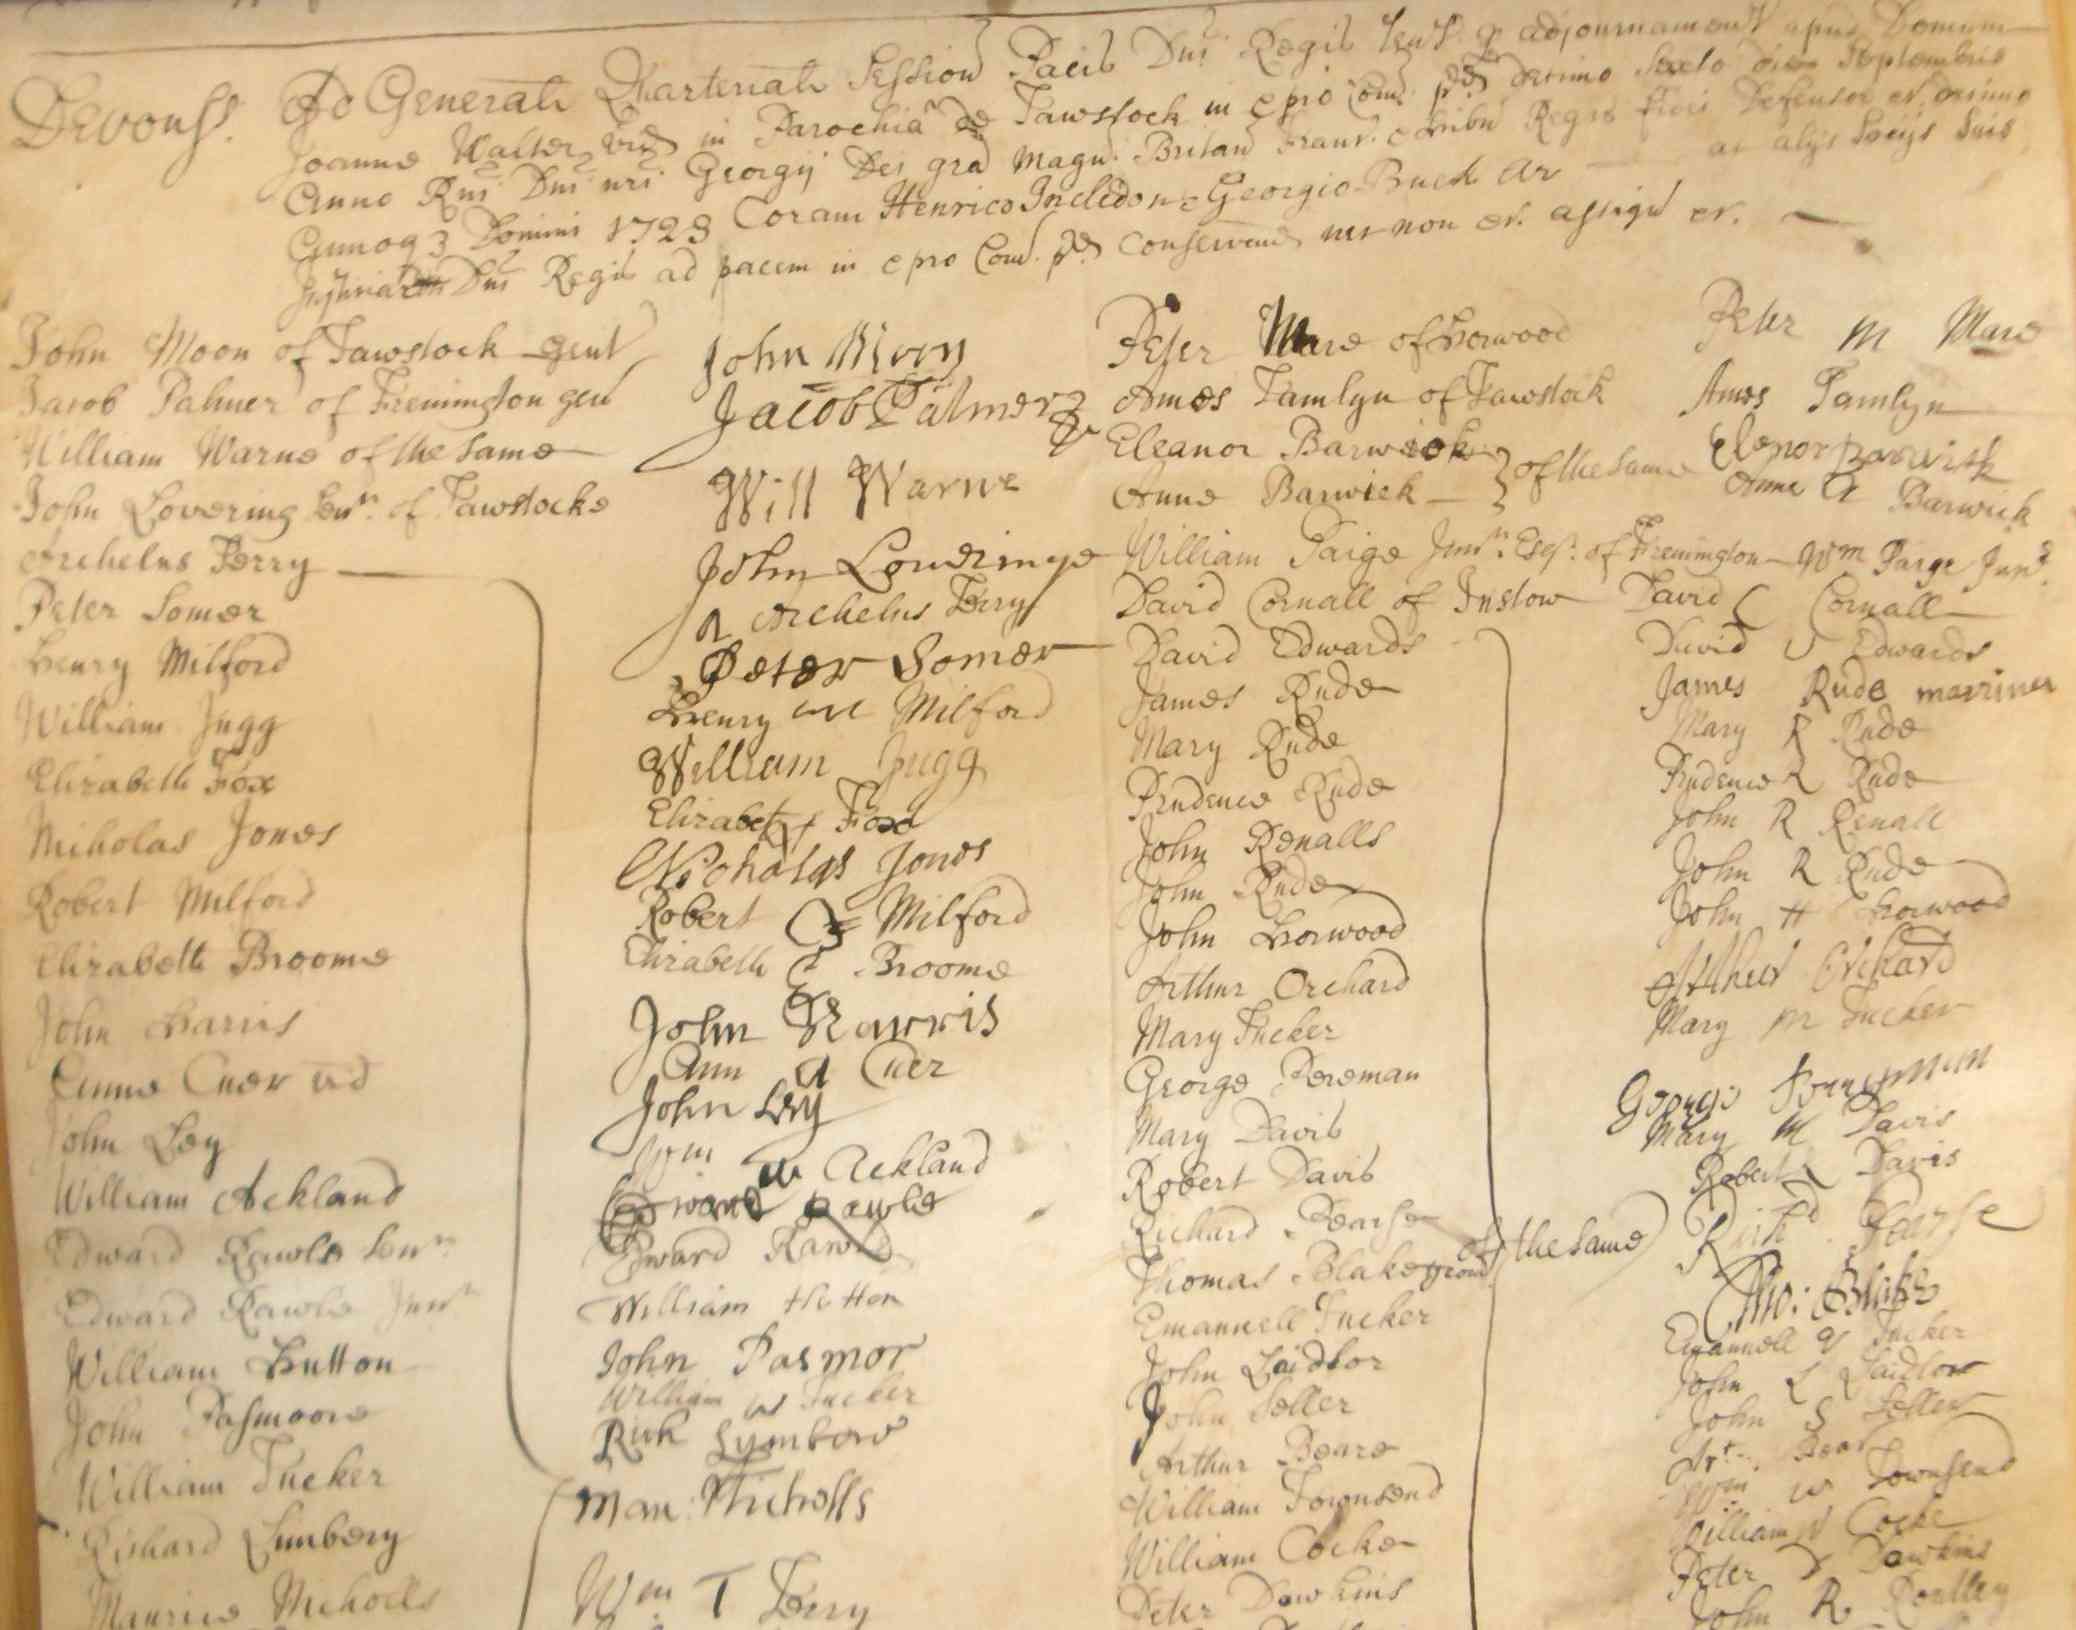 Devonss. Ad Generalem Quarterialem Session Pacis Dni Regis tent p adjournament apud Domum
Joanne Walter vid in Parochia de Tawstock in & pro Com pred decimo Sexto die Septembris
Anno Rni Dni nri Georgij Dei gra Magn Britan Franc & Hibn Regis fidei Defensor et decimo
Annoq3 Domini 1723 Coram Henrico Incledon & Georgio Buck Ar ac alijs Socijs Suis
Justiciar Dni Regis ad pacem in & pro Com pred Conservand nec non et assign et.
John Moon of Tawstock gent
Jacob Palmer of Fremington gen
William Warne of the Same
John Lovering Senr. of Tawstocke
Archelus Terry
Peter Somer
Henry Milford
William Jugg
Elizabeth Fox
Nicholas Jones
Robert Milford
Elizabeth Broome
John Harris
Anne Cuer vid
John Ley
William Ackland
Edward Rawle Senr.
Edward Rawle Junr
William Hutton
John Pasmoore
William Tucker
Richard Limbery
Maurice Nicholls
John Moon
Jacob Palmer
Will Warne
John Loueringe
A Archelus Terry
Peter Somer
Henry m Milford
William Jugg
Elizabeth f Fox
Nicholas Jones
Robert Milford
Elizabeth E Broome
John Harris
Ann A Cuer
John Ley
Wm w Ackland
Edward Rawle
Edward Rawle
William Hutton
John Pasmor
William w Tucker
Rich Lymbery
Mau: Nicholls
Wm T Terry
Peter Mare of Horwood
Amos Tamlyn of Tawstock
Eleanor Barwick
Anne Barwick } of the Same
William Paige Junr. Esqr. of Fremington
David Cornall of Instow
David Edwards
James Rude
Mary Rude
Prudence Rude
John Renalls
John Rude
John Horwood
Arthur Orchard
Mary Tucker
George Pereman
Mary Davis
Robert Davis
Richard Pearse
of the Same
Thomas Blake
Emanuell Tucker
John Laidlor
John Seller
Arthur Beare
William Townsend
William Cocke
Peter Dawkins
Peter M Mare
Amos Tamlyn
Elenor Barwick
Anne A Barwick
Wm Paige Junr.
David C Cornall
David Edwards
James Rude marriner
Mary R Rude
Prudence R Rude
John R Renall
John R Rude
John H Horwood
Arthur Orchard
Mary m Tucker
George
Mary M Davis
Robert Davis
Richd Pearse
Tho: Blake
Emanuell Tucker
John L Laidlor
John S Seller
Art. Bear
Wm w Townsend
William Cocke
Peter D Dawkins
John R